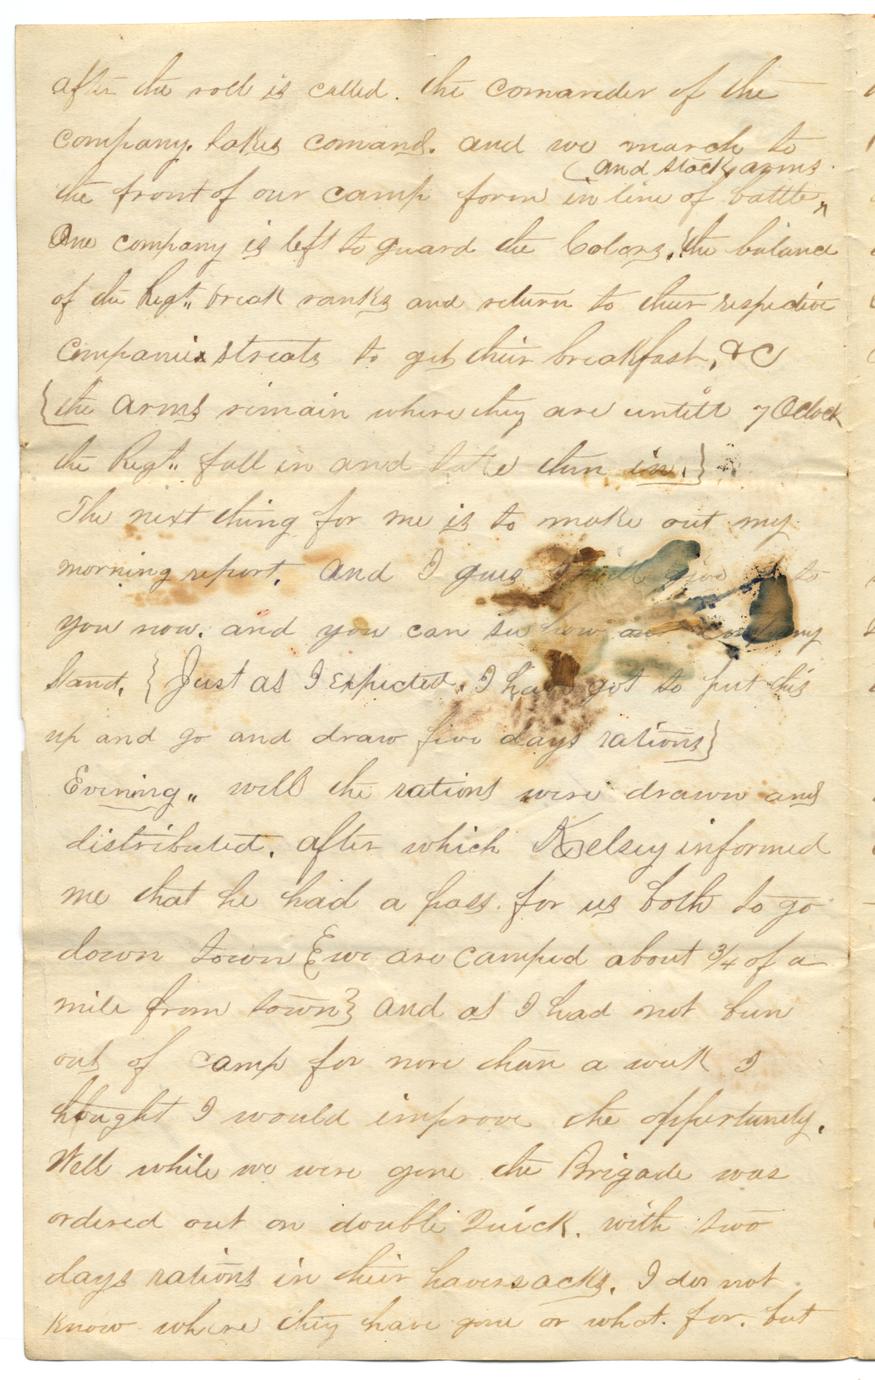 after the roll is called. the comander of the
company. takes comand. and we march to
(and stack arms.
the front of our camp form in line of battle,,
One company is left to guard the Colors, the balance
of the Regt,, break ranks and return to their respective
companies streats to get their breakfast, &C
{the arms remain where they are untill 7 Oclock
the Regt,, fall in and take them in.}
The next thing for me is to make out my
morning report. And I guess I will give it to
you now. and you can see how our company
stand. {Just as I Expected. I have got to put this
up and go and draw five days rations}
Evening,, well the rations were drawn and
distributed. after which Kelsey informed
me that he had a pass for us both to go
down town {we are camped about 3/4 of a
mile from town} and as I had not bin
out of camp for more than a week I
thought I would improve the oppertunity.
Well while we were gone the Brigade was
ordered out on double Quick. with two
days rations in their haversacks. I do not
know where they have gone or what for. but